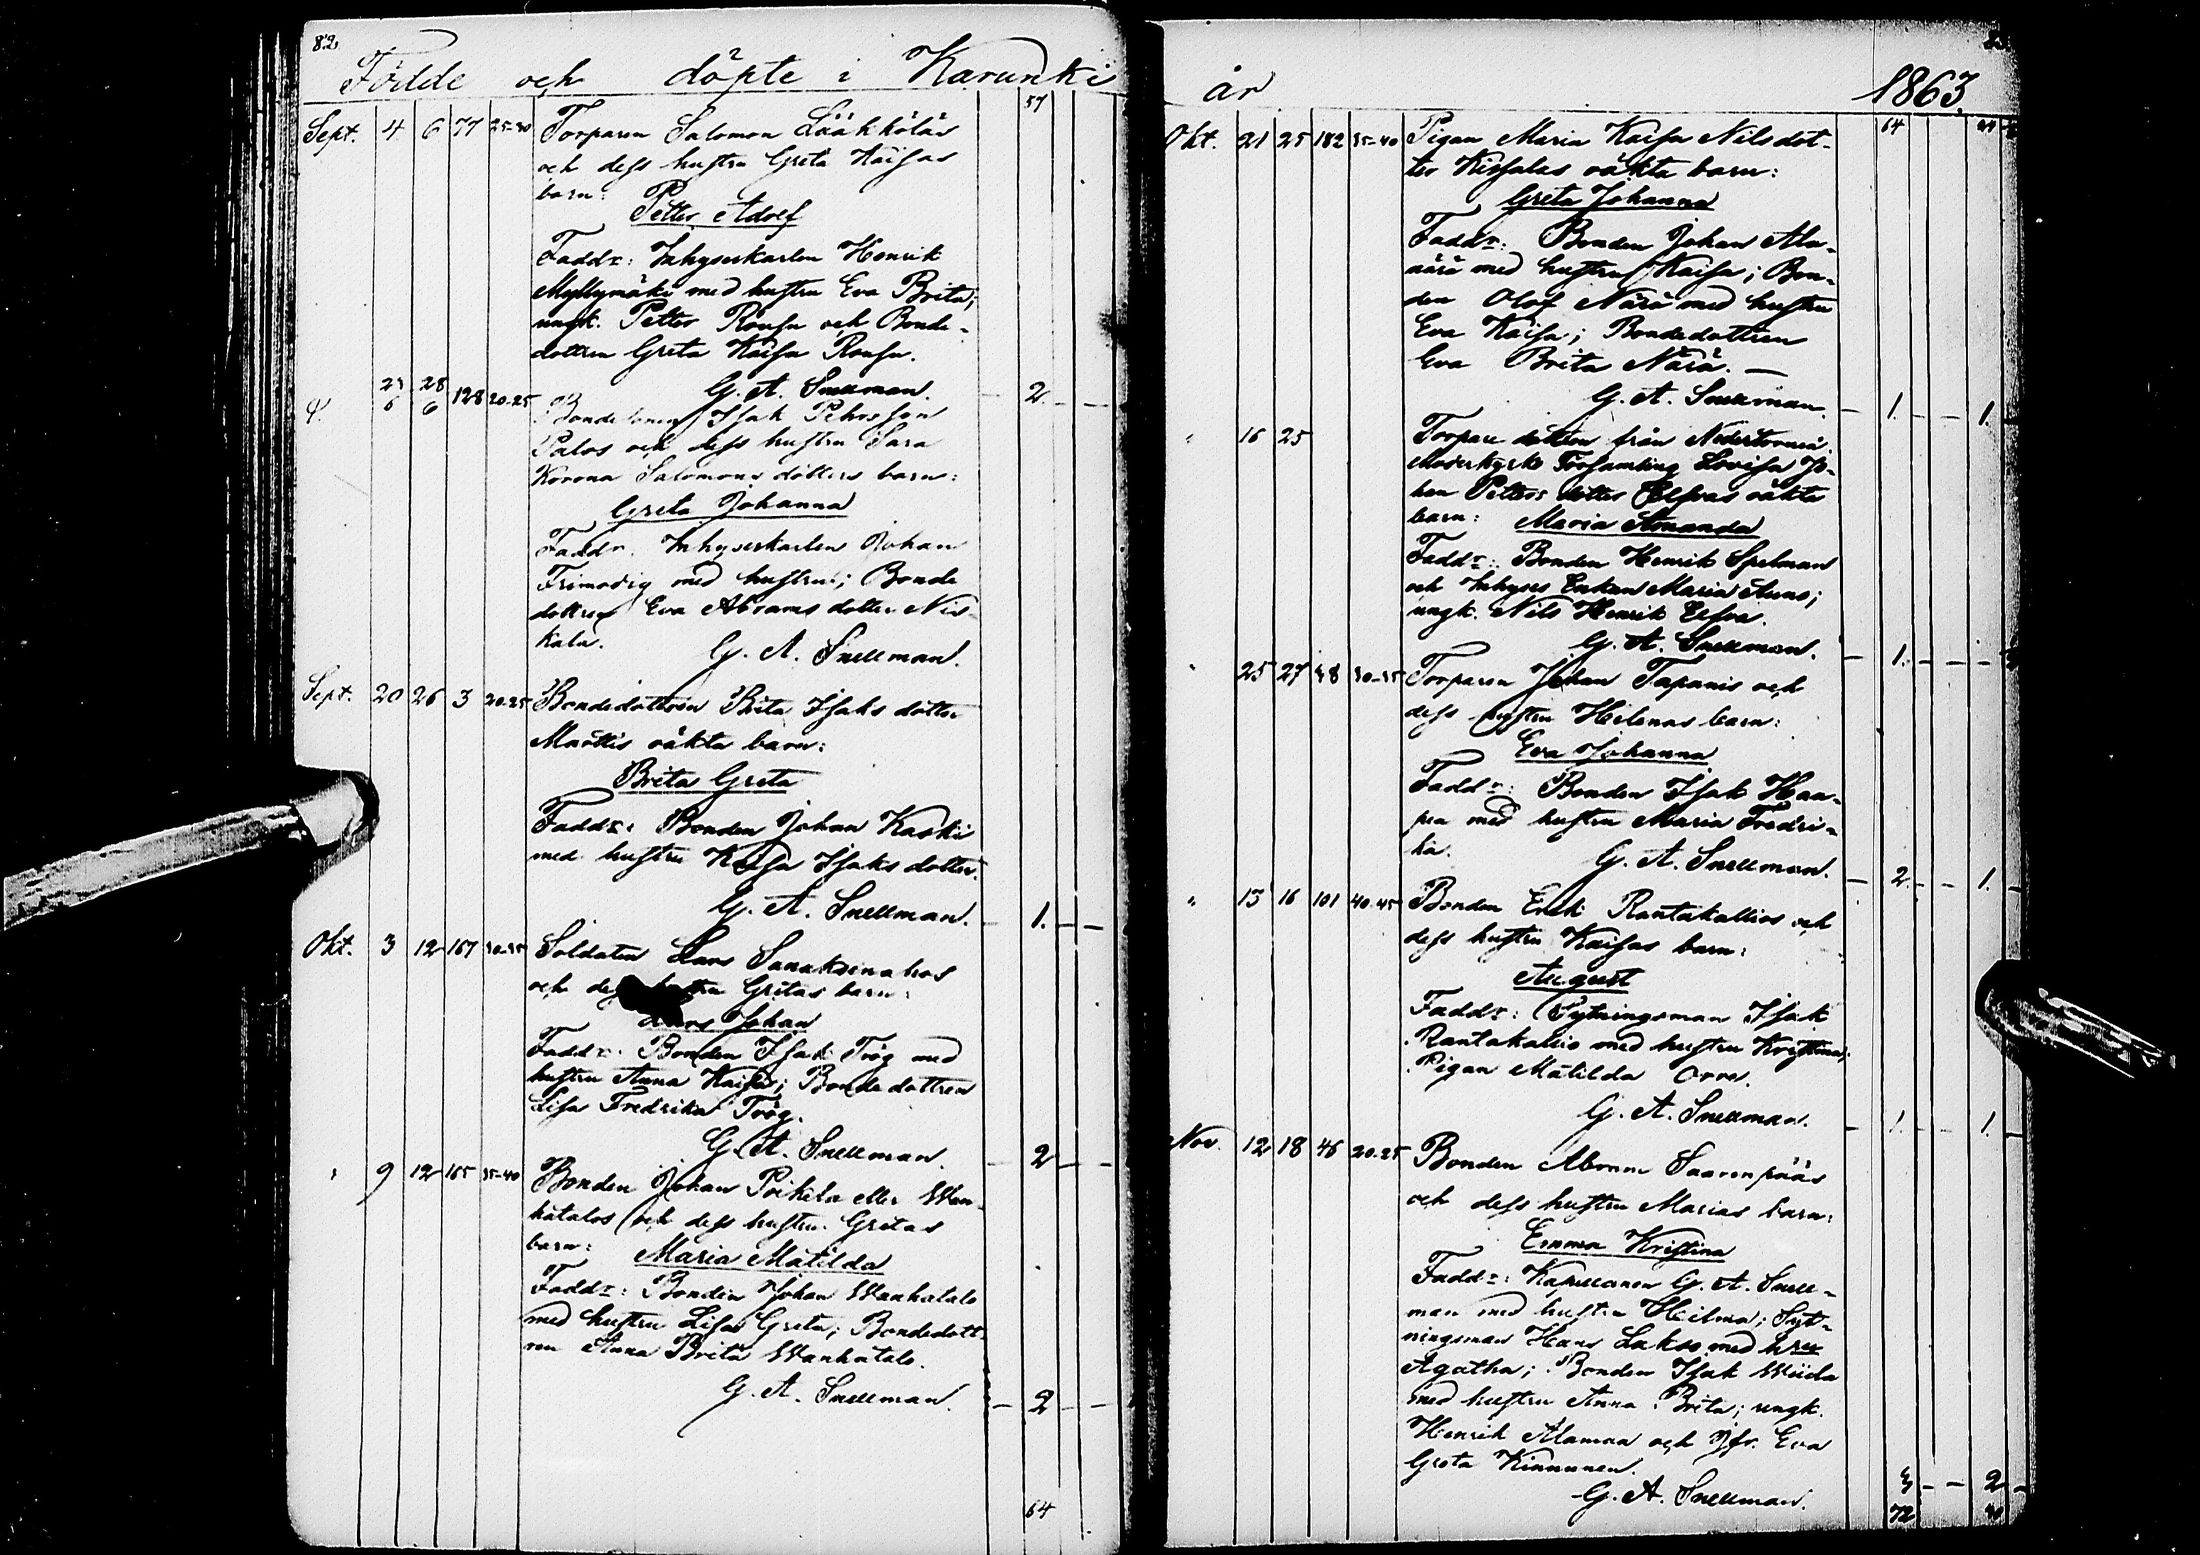 82
Födde och döpte i Karunki
57
Sept. 4 6 77 25-30 Torparen Salomon Lääkköläs
och dess hustru Greta Kaisas
barn:
Petter Adolf
Faddr: Inhysekarlen Henrik
Myllymäki med hustru Eva Brita;
ungk. Petter Roufu och Bonde-
dottren Greta Kaisa Roufu.
G. A. Snellman. 2.
128 20-25
Bondesonen Isak Pehrsson
Palos och dess hustru Sara
Korona Salomons dotters barn:
Greta Johanna
Faddr: Inhysekarlen Johan
Frimodig med hustru; Bonde
dottren Eva Abrams dotter Nis
kala.
G. A. Snellman.
Sept. 20 26 3 20-25 Bondedottren Brita Isaks dotter
Marttis oäkta barn:
Brita Greta
Faddr: Bonden Johan Kaski
med hustru Kaisa Isaks dotter.
G. A. Snellman. 1.
Okt. 3 12 167 30-35 Soldaten Lars Sanaksenahos
och dess hustru Gretas barn:
Lars Johan
Faddr: Bonden Isak Trög med
hustru Anna Kaisa; Bonde dottren
Lisa Fredrika Trög.
G. A. Snellman. 2
" 9 12 165 35-40 Bonden Johan Poikela eller Wan
hatalos och dess hustru Gretas
barn: Maria Matilda
Faddr: Bonden Johan Wanhatalo
med hustru Lisa Greta; Bondedott
ren Anna Brita Wanhatalo.
G. A. Snellman. 2
64
år 1863.
64
Okt. 21 25 182 35-40 Pigan Maria Kaisa Nilsdot-
ter Kissalas oäkta barn:
Greta Johanna
Faddr: Bonden Johan Ala-
närä med hustru Kaisa; Bon-
den Olof Närä med hustru
Eva Kaisa; Bondedottren
Eva Brita Närä. —
G. A. Snellman. 1. 1.
" 16 25 Torpare dottren från Nedertorneå
Moderkyrko Församling Lovisa Jo-
han Petters dotter Elfvas oäkta
barn: Maria Amanda
Faddr: Bonden Henrik Spelman
och Inhyses Enkan Maria Auno;
ungk. Nils Henrik Elfva.
G. A. Snellman. 1.
" 25 27 48 30-35 Torparen Johan Tapanis och
dess hustru Helenas barn:
Eva Johanna
Faddr: Bonden Isak Haa-
pa med hustru Maria Fredri-
ka.
G. A. Snellman. 2. 1.
" 13 16 101 40-45 Bonden Erik Rantakallios och
dess hustru Kaisas barn:
August
Faddr: Sytningsman Isak
Rantakallio med hustru Kristina;
Pigan Matilda Orre.
G. A. Snellman. 1. 1.
Nov. 12 18 46 20-25 Bonden Abram Saarenpääs
och dess hustru Marias barn:
Emma Kristina
Faddr: Kapellanen G. A. Snell-
man med hustru Hilma; Syt-
ningsman Hans Lakso med hru
Agatha; Bonden Isak Wiida
med hustru Anna Brita; ungk.
Henrik Alamaa och Jfr. Eva
Greta Kinnunen.
G. A. Snellman. 3 2
72